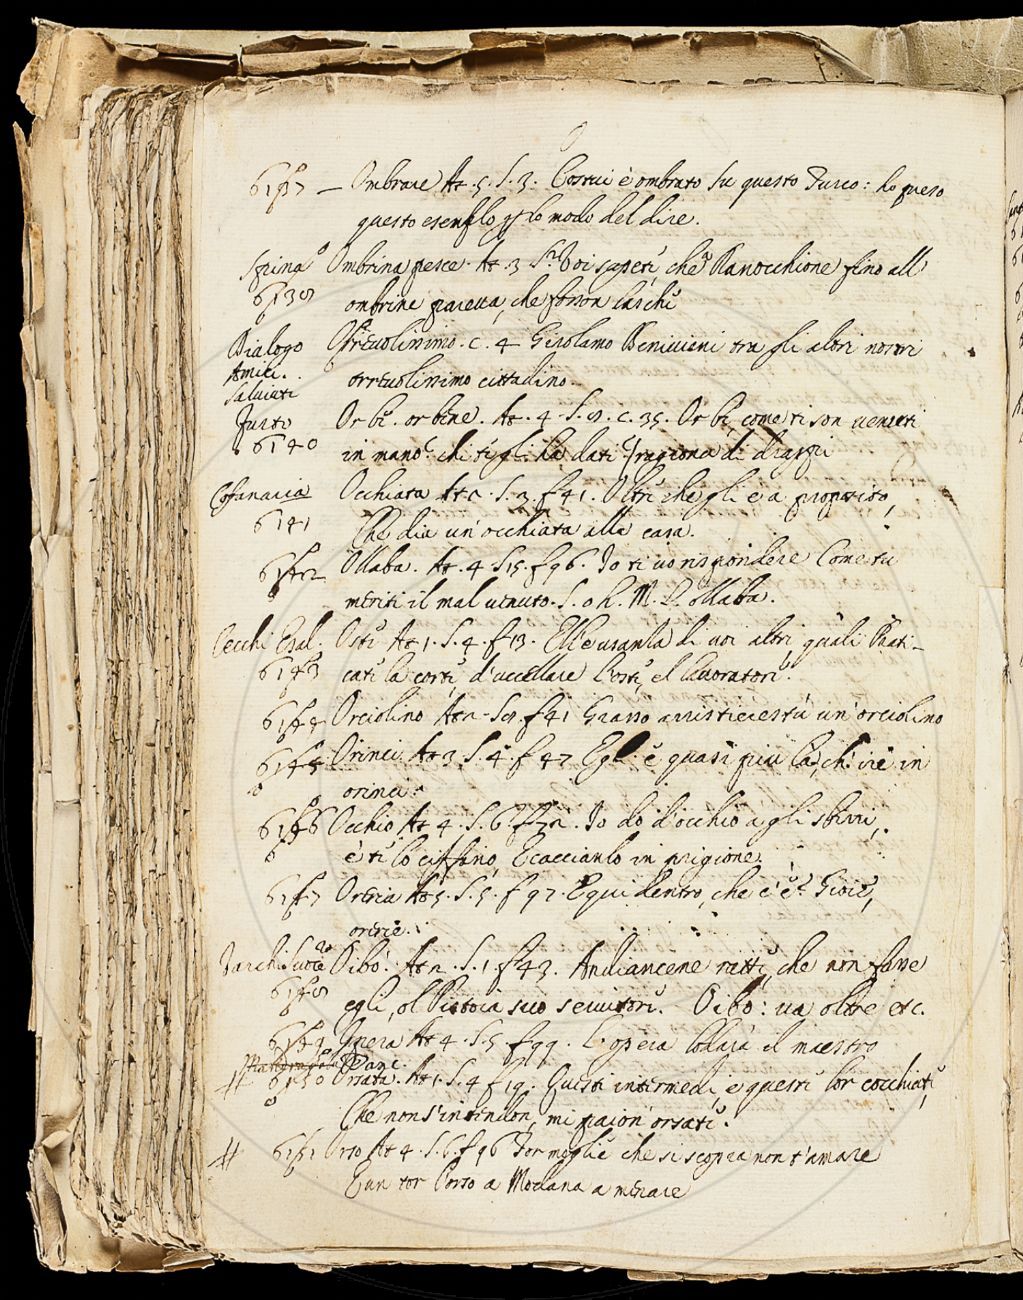 O
6137 — Ombrare At. 5. S. 3. Costui è ombrato su questo Turco: ho preso
questo esemplo p lo modo del dire.
Spina Ombrina pesce. At. 3 Voi sapete, che Ranocchione fino all
6138 ombrine pareva, che fosson lasche
Dialogo Orrevolissimo. c. 4 Girolamo Benivieni tra gli altri nostri
Amici. orrevolissimo cittadino.
Salviati
Furto Or be. or bene. At. 4. S. 8. c. 35. Or be, come ti son venuti
6140 in mano? chi te gli ha dati? ragiona di
Cofanaria Occhiata At 2. S. 2. f 41. Oltre che gli è a proposito,
6141 Che dia un'occhiata alla casa.
6142 Ollaba. At. 4. S 15. f 96. Io ti vo rispondere Come tu
meriti il mal venuto. S. Oh. M. ollaba.
Cecchi Esal. Oste At 1. S. 4. f 13. Ell'è usanza di voi altri, quali Prati-
6143 cate la corte, d'uccellare l'oste, e'l lavoratore.
6144 Orciolino At 2. S 8. f 41 Grasso un'orciolino
6145 Orinci At 3 S. 4. f 47 Egl. è quasi più là, ch. ire in
orinci.
6146 Occhio At 4. S. 6. f 72. Io do d'occhio a gli sbirri,
e te lo ciuffano, E caccianlo in prigione.
6147 Oreria At 5. S. 5. f 97. E qui dentro, che c'è? Gioie,
orerie.
Varchi Suoce Oibò. At 2. S. 1. f 43. Andiancene ratti, che non fosse
6148 egli, o'l Pistoia suo servitore. Oibò: va oltre etc.
6149 Opera At 4. S. 5 f 99. L'opera loderà il maestro
Dani
# 6150 Orsata. At 1. S. 4 f 19. Questi intermedi, e queste lor cocchiate,
Che non s'intendon, mi paion'orsate.
# 6151 Orso At 4. S. 6. f 96 Tor moglie che si scopra non t'amare
È un tor l'orso a Modana a menare